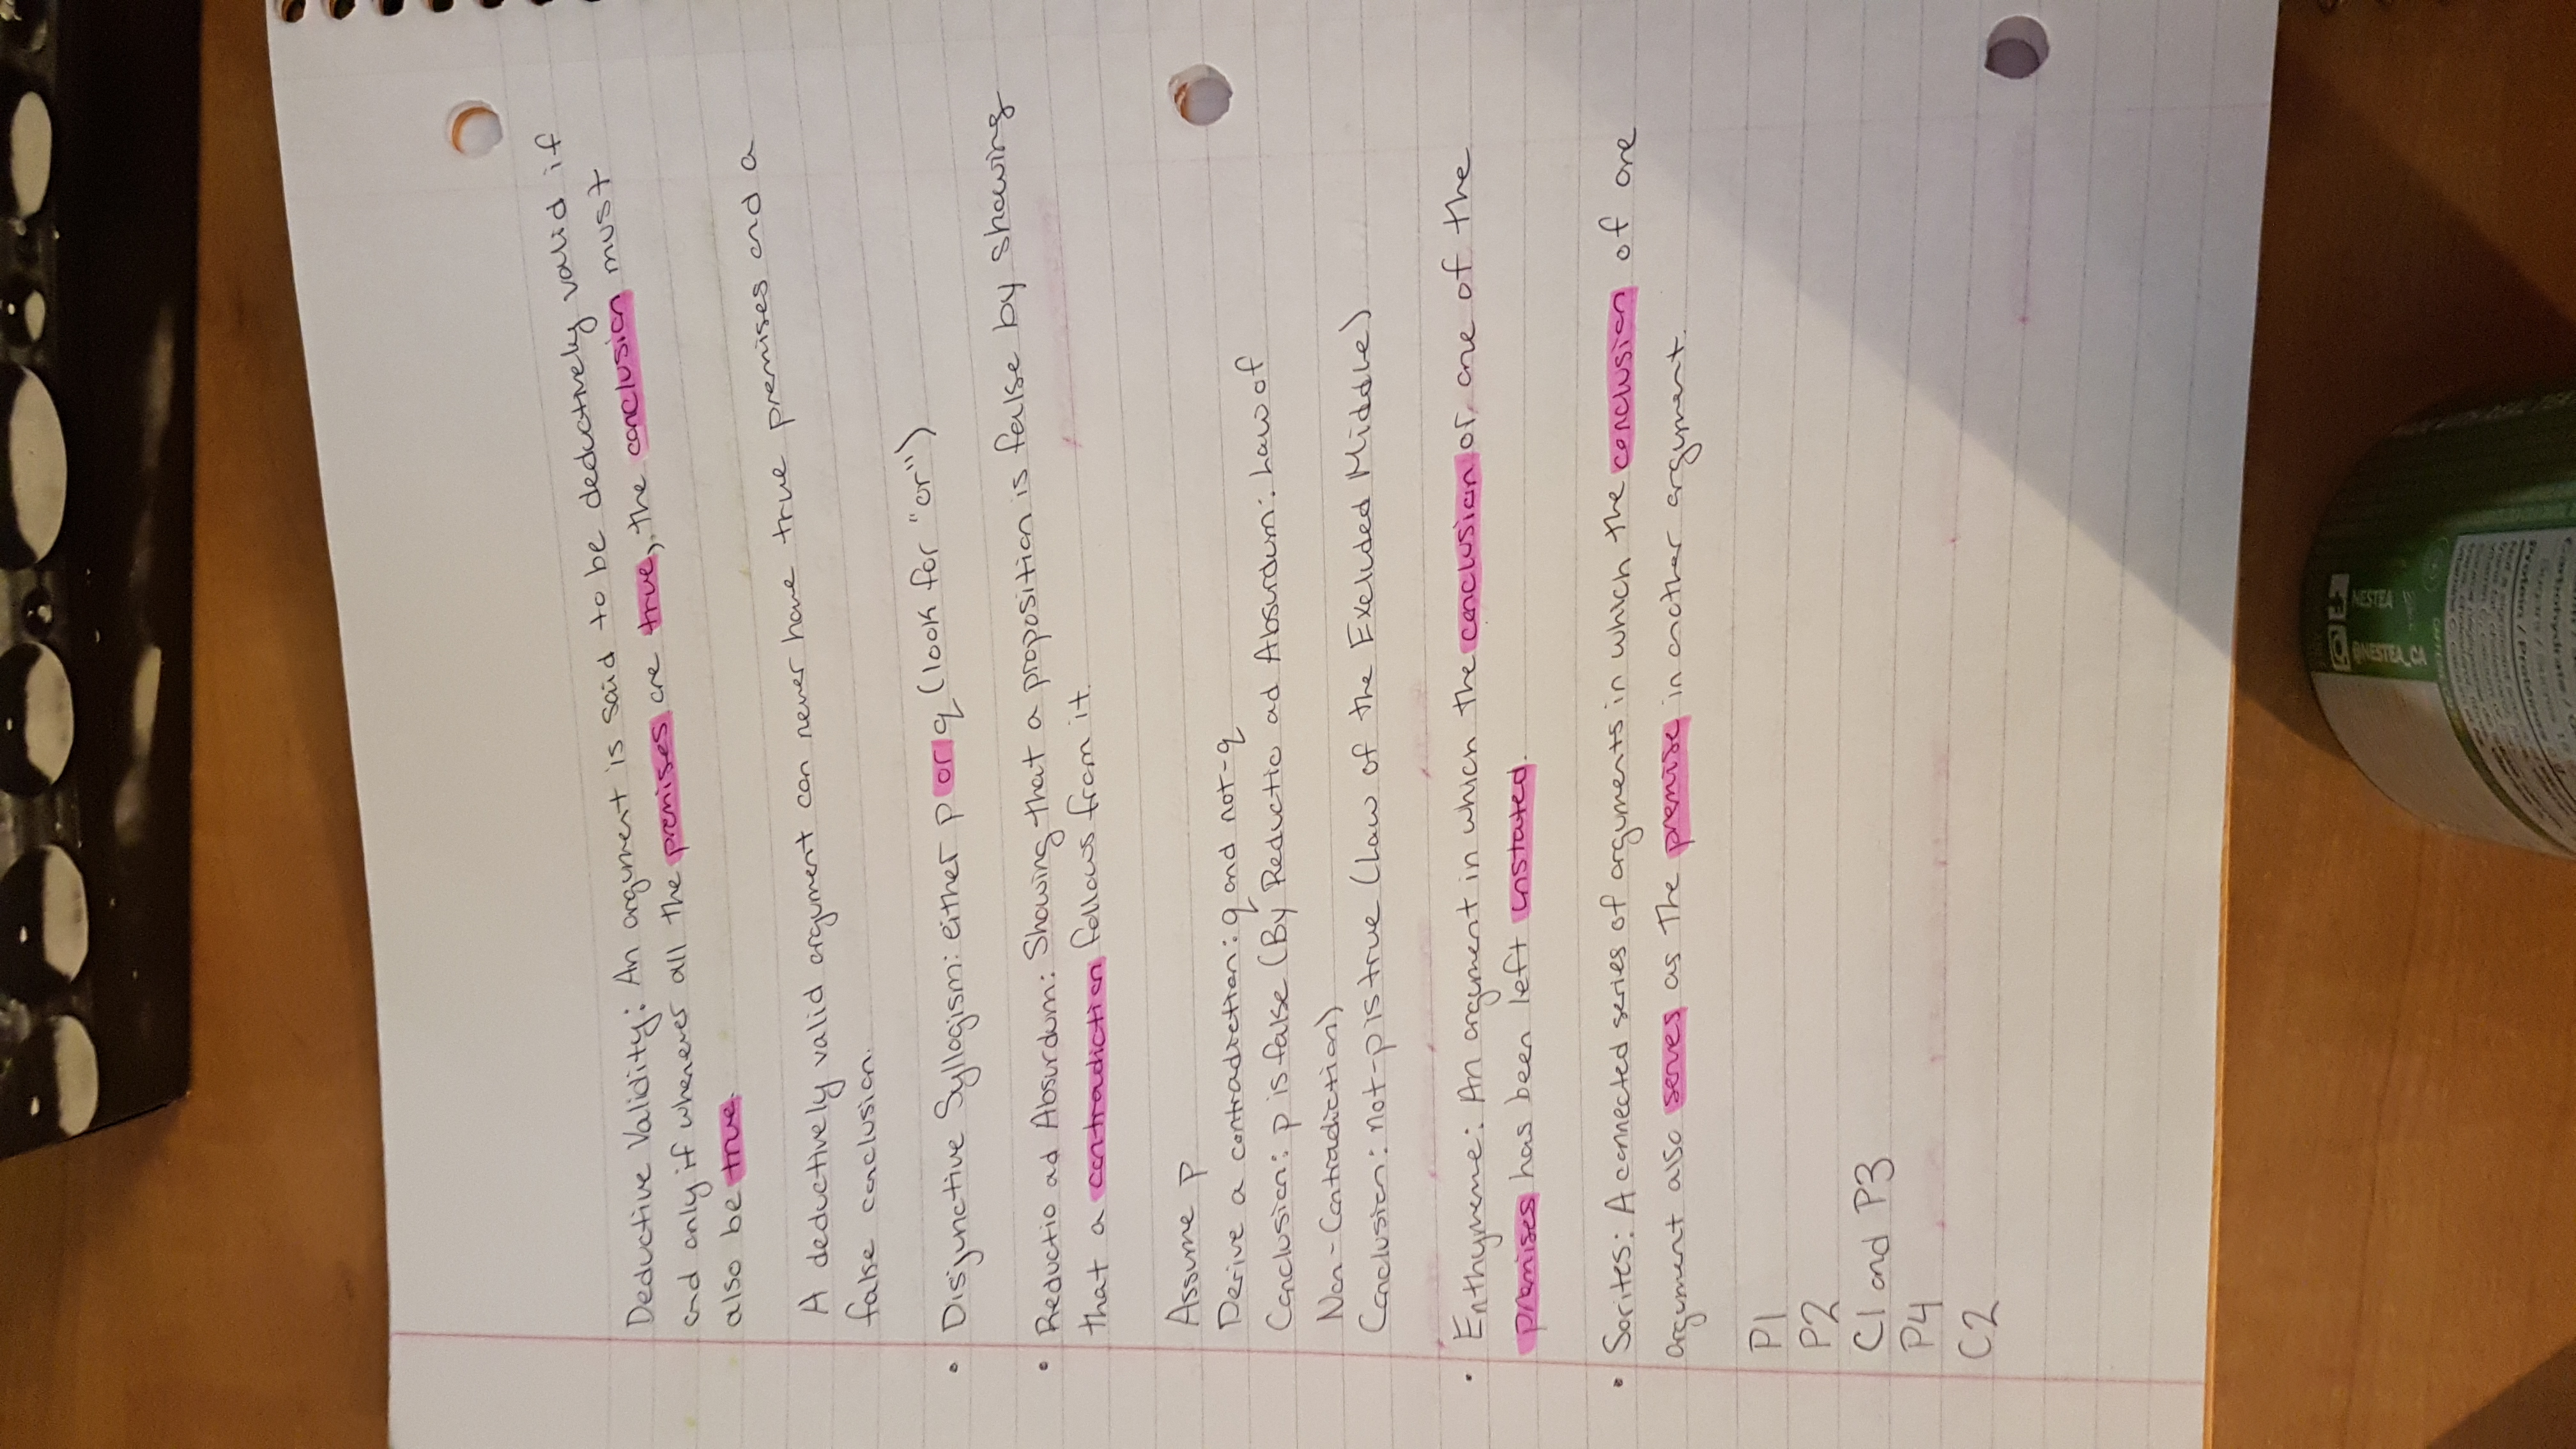 Deductive Validity: An argument is said to be deductively valid if
and only if whenever all the premises are true, the conclusion must
also be true.
A deductively valid argument can never have true premises and a
false conclusion.
• Disjunctive Syllogism: either p or q (look for "or")
• Reductio ad Absurdum: Showing that a proposition is false by showing
that a contradiction follows from it.
Assume p
Derive a contradiction: q and not-q
Conclusion: p is false (By Reductio ad Absurdum: Law of
Non-Contradiction)
Conclusion: not-p is true (Law of the Excluded Middle)
• Enthymeme: An argument in which the conclusion or one of the
premises has been left unstated.
• Sorites: A connected series of arguments in which the conclusion of one
argument also serves as the premise in another argument.
P1
P2
C1 and P3
P4
C2
NESTEA
@NESTEA_CA